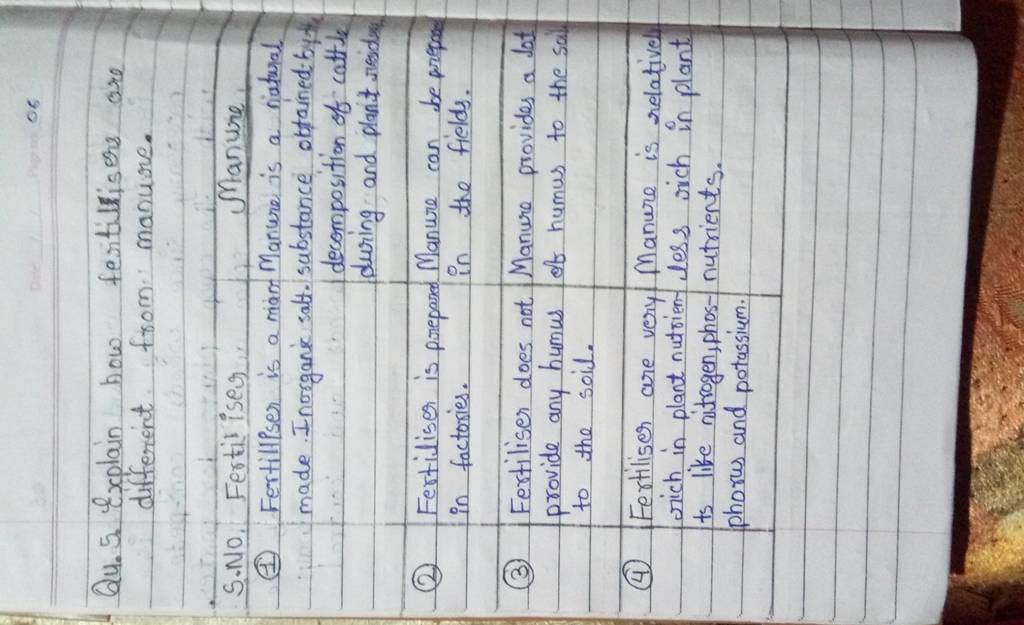 06
Qu.5. Explain how fertilisers are
different from manure.
S.No. Fertiliser Manure
1 Fertiliser is a man Manure is a natural
made Inorganic salt. substance obtained by the
decomposition of cattle
during and plant residues
2 Fertiliser is prepared Manure can be prepared
in factories. in the fields.
3 Fertiliser does not Manure provides a lot
provide any humus of humus to the soil
to the soil.
4 Fertiliser are very Manure is relatively
rich in plant nutrien- less rich in plant
ts like nitrogen, phos- nutrients.
phorus and potassium.